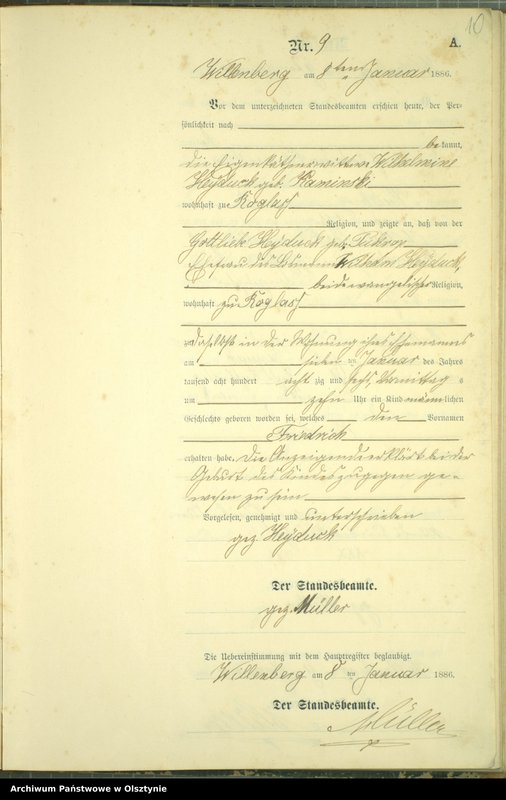 10
Nr. 9
A.
Willenberg am 8ten Januar 1886.
Vor dem unterzeichneten Standesbeamten erschien heute, der Per-
sönlichkeit nach
bekannt,
die Eigenkäthnerwittwe Wilhelmine
Heÿduck geb. Kaminski
wohnhaft zu Roglass
Religion, und zeigte an, daß von der
Gottliebe Heÿduck geb.
Ehefrau des Wilhelm Heÿduck,
beide evangelischer Religion,
wohnhaft zu Roglass
daselbst in der Wohnung ihres Ehemanns
am sieben ten Januar des Jahres
tausend acht hundert acht zig und sechs, Vormittag s
um zehn Uhr ein Kind männlichen
Geschlechts geboren worden sei, welches den Vornamen
Friedrich
erhalten habe. Die Anzeigende erklärte bei der
Geburt des Kindes zugegen ge-
wesen zu sein.
Vorgelesen, genehmigt und unterschrieben
gez. Heÿduck
Der Standesbeamte.
gez. Müller
Die Uebereinstimmung mit dem Hauptregister beglaubigt.
Willenberg am 8 ten Januar 1886.
Der Standesbeamte.
Müller
Archiwum Państwowe w Olsztynie